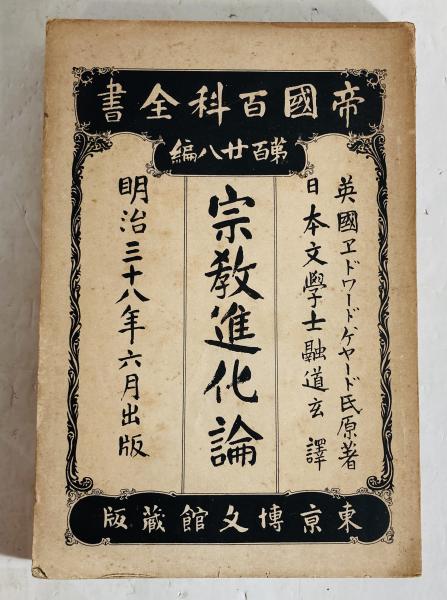 帝國百科全書
第百廿八編
英國ヱドワード、ケヤード氏原著
日本文學士融道玄 譯
宗教進化論
明治三十八年六月出版
東京博文館藏版